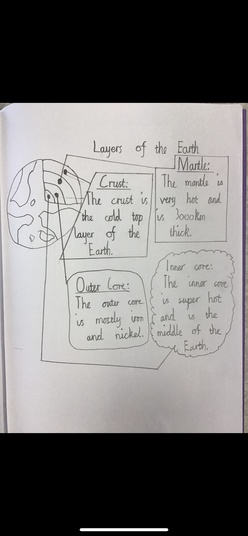 Layers of the Earth
Mantle:
The mantle is
very hot and
is 3000km
thick.
Crust:
The crust is
the cold top
layer of the
Earth.
Outer Core:
The outer core
is mostly iron
and nickel.
Inner core:
The inner core
is super hot
and is the
middle of the
Earth.